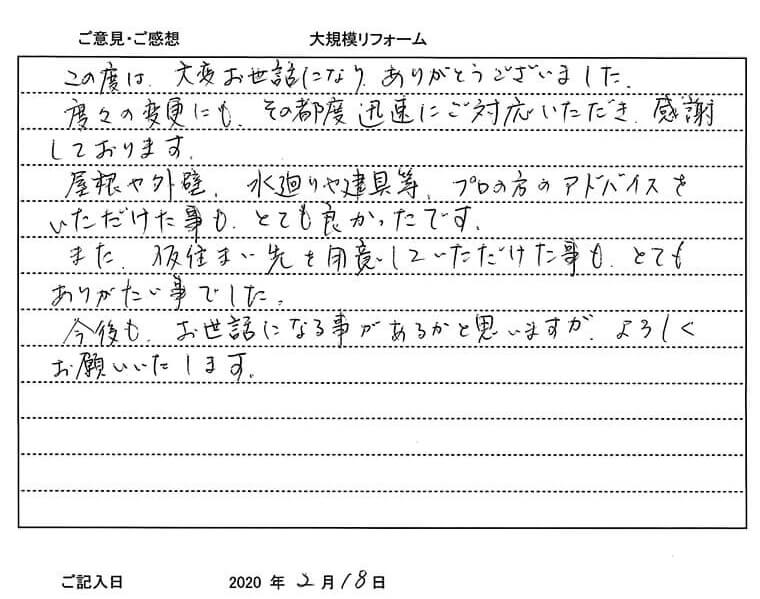 ご意見・ご感想　大規模リフォーム
この度は、大変お世話になり、ありがとうございました。
度々の変更にも、その都度迅速にご対応いただき、感謝
しております。
屋根や外壁、水廻りや建具等、プロの方のアドバイスを
いただけた事も、とても良かったです。
また、仮住まい先を用意していただけた事も、とても
ありがたい事でした。
今後も、お世話になる事があるかと思いますが、よろしく
お願いいたします。
ご記入日　2020 年 2 月 18 日